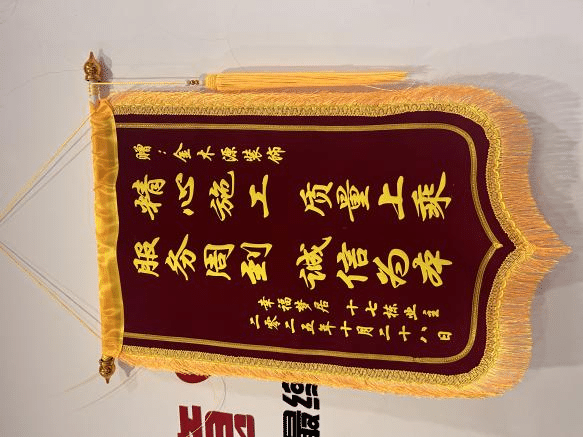 贈：金木源装饰
精心施工 质量上乘
服务周到 诚信为本
幸福梦居 十七栋业主
二零二五年十月二十八日